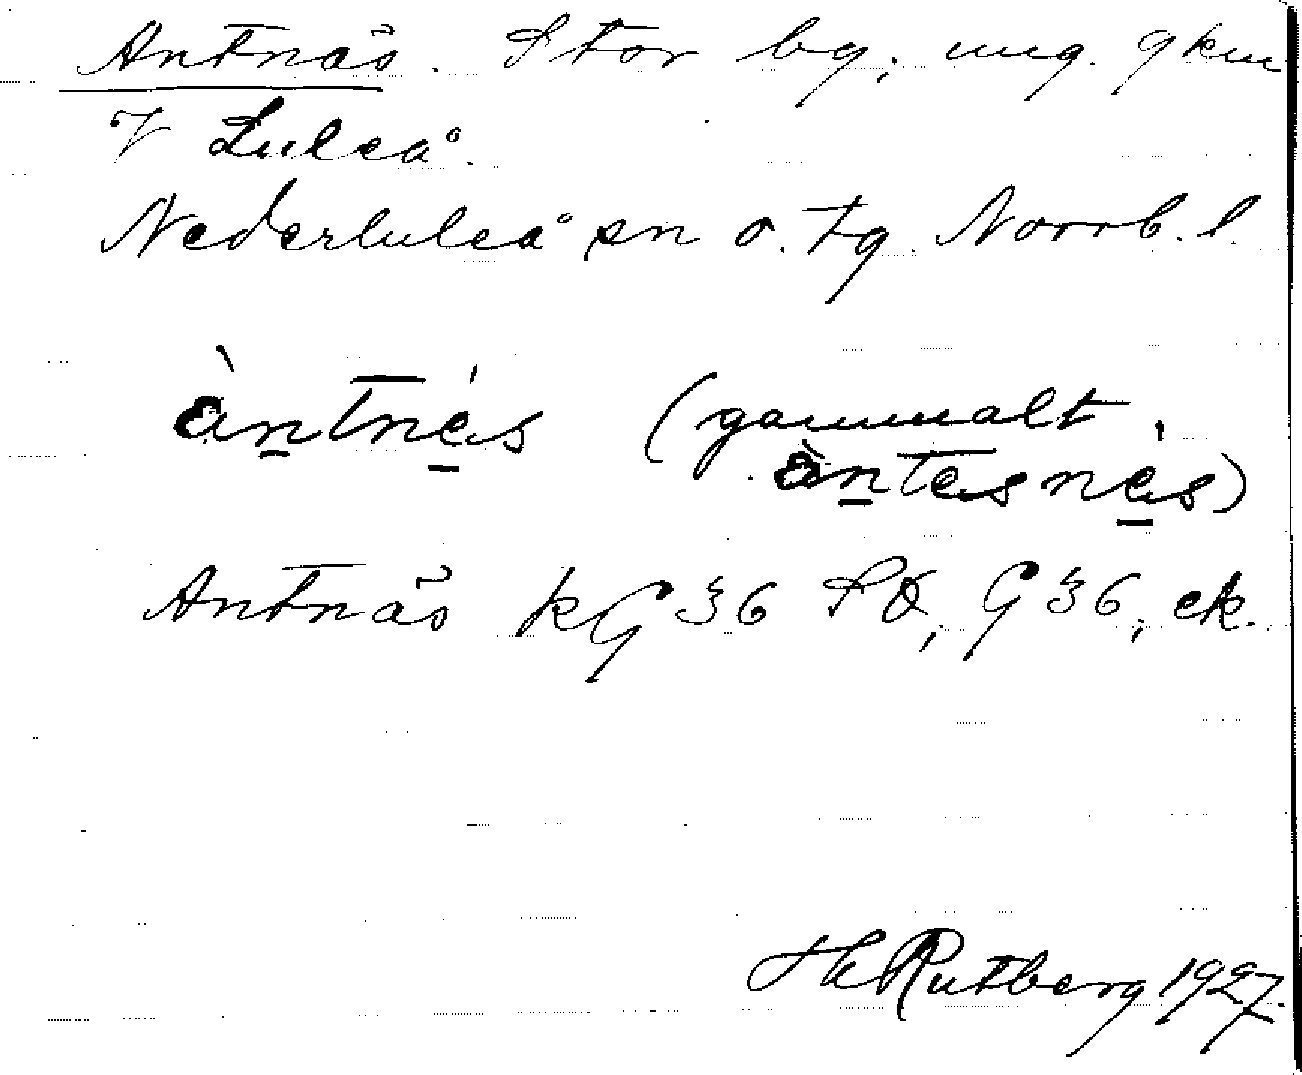 Antnäs. Stor by, ung. 9 km
V Luleå.
Nederluleå sn o. tg. Norrb. l.
àntnés (gammalt
àntesnés)
Antnäs kG 36 SO, G 36, ek.
Hk Rutberg 1927.